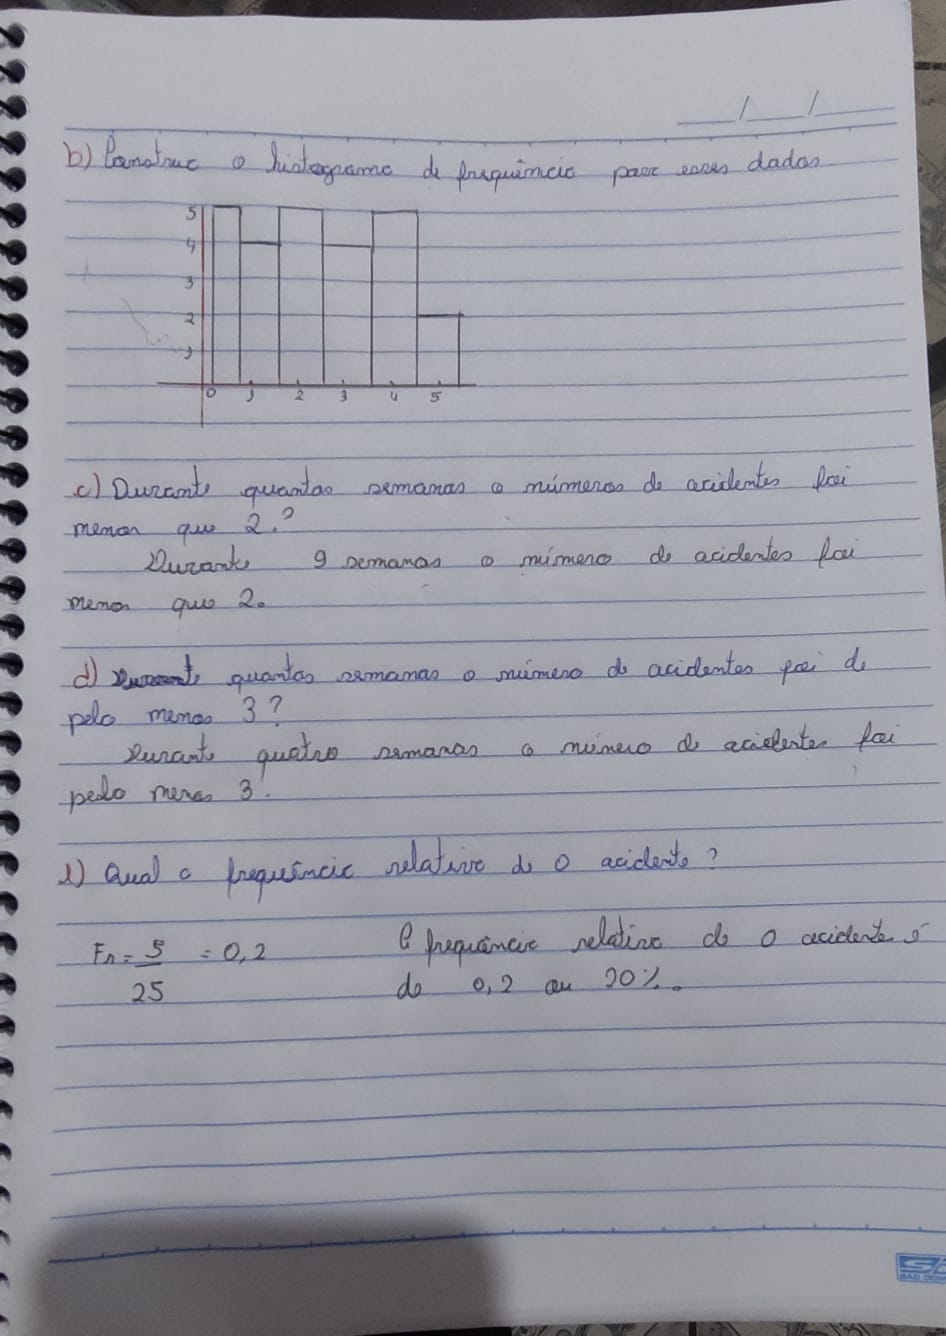 __/__/__
b) Construc o histograma de frequência para esses dados
5
4
3
2
1
0 1 2 3 4 5
c) Durante quantas semanas o números de acidentes foi
menor que 2?
Durante 9 semanas o número de acidentes foi
menor que 2.
d) Durante quantas semanas o número de acidentes foi de
pelo menos 3?
Durante quatro semanas o número de acidentes foi
pelo menos 3.
e) Qual a frequência relativa de 0 acidente?
Fr = 5/25 = 0,2 A frequência relativa de 0 acidente é
de 0,2 ou 20%.
SÃO DOM